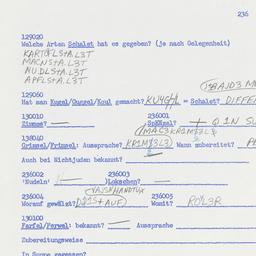 236
129020
Welche Arten Schalet hat es gegeben? (je nach Gelegenheit)
KARTOFLSTA.L3T
MACNSTA.L3T
NU.DLSTA.L3T
APFLSTA.L3T
129060
Hat man Kugel/Gunzel/Koul gemacht? = Schalet? DIFFE
130010 236001
Zimmes? — SpNKnel? + Q IN SU
138040
Grimsel/Frimsel: Aussprache? KRIM[3L3] Wann zubereitet?
Auch bei Nichtjuden bekannt?
236002 236003
'Nudeln' Lokschen? —
236004 236005
Worauf gewälzt? AUF) Womit? RO.L3R
130100
Farfel/Ferwel: bekannt? — Aussprache
Zubereitungsweise
In Suppe gegessen?